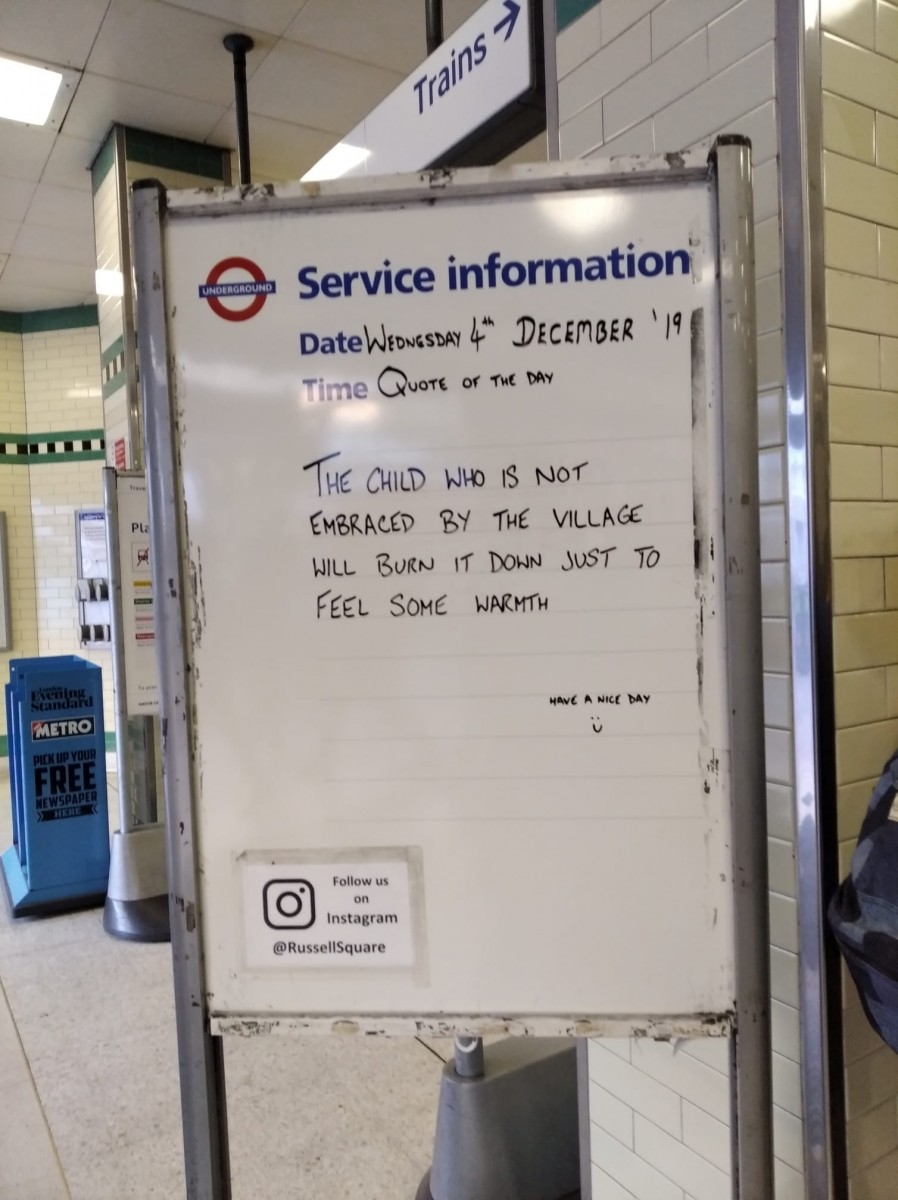 Trains →
UNDERGROUND
Service information
Date WEDNESDAY 4th DECEMBER '19
Time QUOTE OF THE DAY
THE CHILD WHO IS NOT
EMBRACED BY THE VILLAGE
WILL BURN IT DOWN JUST TO
FEEL SOME WARMTH
HAVE A NICE DAY
Follow us
on
Instagram
@RussellSquare
London
Evening
Standard
METRO
PICK UP YOUR
FREE
NEWSPAPER
HERE
Pla